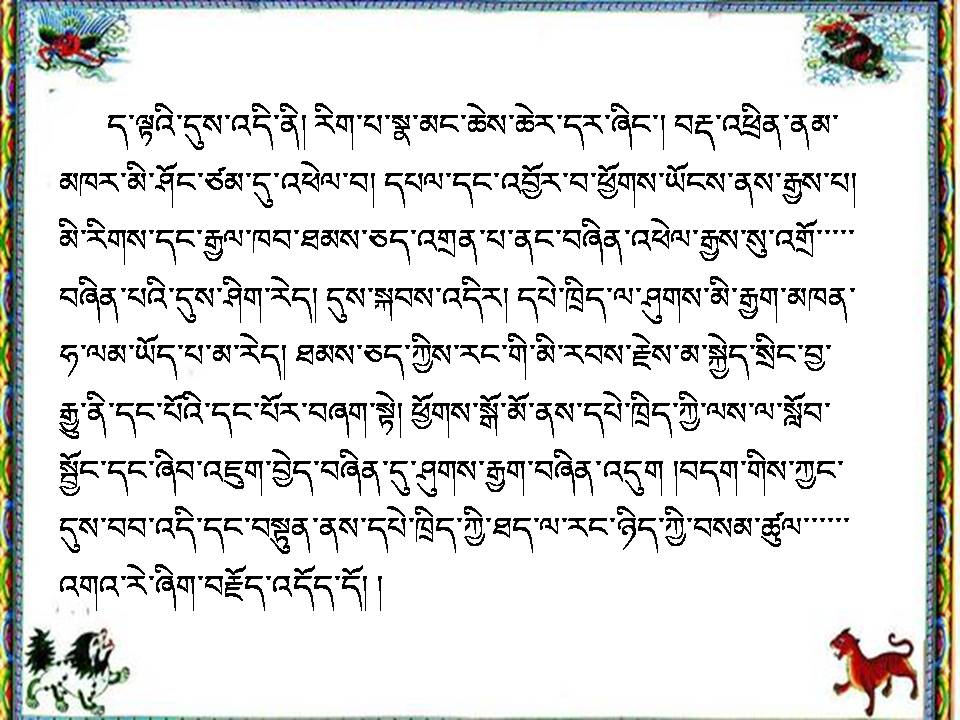 ད་ལྟའི་དུས་འདི་ནི། རིག་པ་སྣ་མང་ཆེས་ཆེར་དར་ཞིང་། བརྡ་འཕྲིན་ནམ་
མཁར་མི་ཤོང་ཙམ་དུ་འཕེལ་བ། དཔལ་དང་འབྱོར་བ་ཕྱོགས་ཡོངས་ནས་རྒྱས་པ།
མི་རིགས་དང་རྒྱལ་ཁབ་ཐམས་ཅད་འགྲན་པ་ནང་བཞིན་འཕེལ་རྒྱས་སུ་འགྲོ་་་་་
བཞིན་པའི་དུས་ཤིག་རེད། དུས་སྐབས་འདིར། དཔེ་ཁྲིད་ལ་ཤུགས་མི་རྒྱག་མཁན་
ཧ་ལམ་ཡོད་པ་མ་རེད། ཐམས་ཅད་ཀྱིས་རང་གི་མི་རབས་རྗེས་མ་སྐྱེད་སྲིང་བྱ་
རྒྱུ་ནི་དང་པོའི་དང་པོར་བཞག་སྟེ། ཕྱོགས་སྒོ་མོ་ནས་དཔེ་ཁྲིད་ཀྱི་ལས་ལ་སློབ་
སྦྱོང་དང་ཞིབ་འཇུག་བྱེད་བཞིན་དུ་ཤུགས་རྒྱག་བཞིན་འདུག །བདག་གིས་ཀྱང་
དུས་བབ་འདི་དང་བསྟུན་ནས་དཔེ་ཁྲིད་ཀྱི་ཐད་ལ་རང་ཉིད་ཀྱི་བསམ་ཚུལ་་་་་་
འགའ་རེ་ཞིག་བརྗོད་འདོད་དོ། །